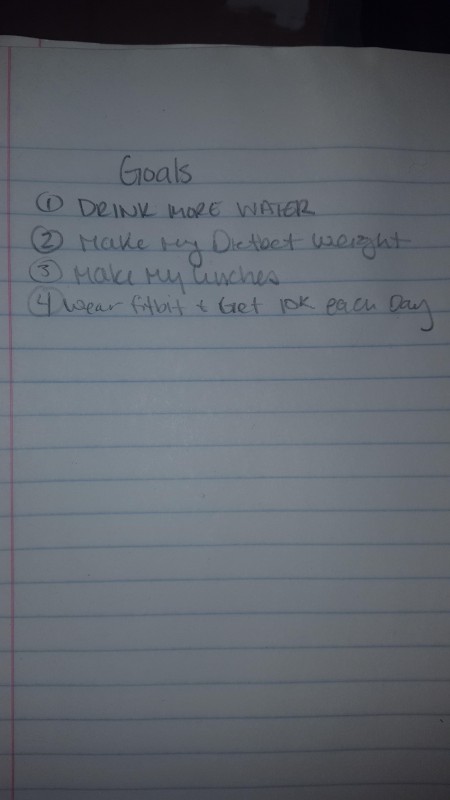 Goals
① DRINK MORE WATER
② Make My Dietbet weight
③ Make My lunches
④ Wear fitbit & Get 10K each Day